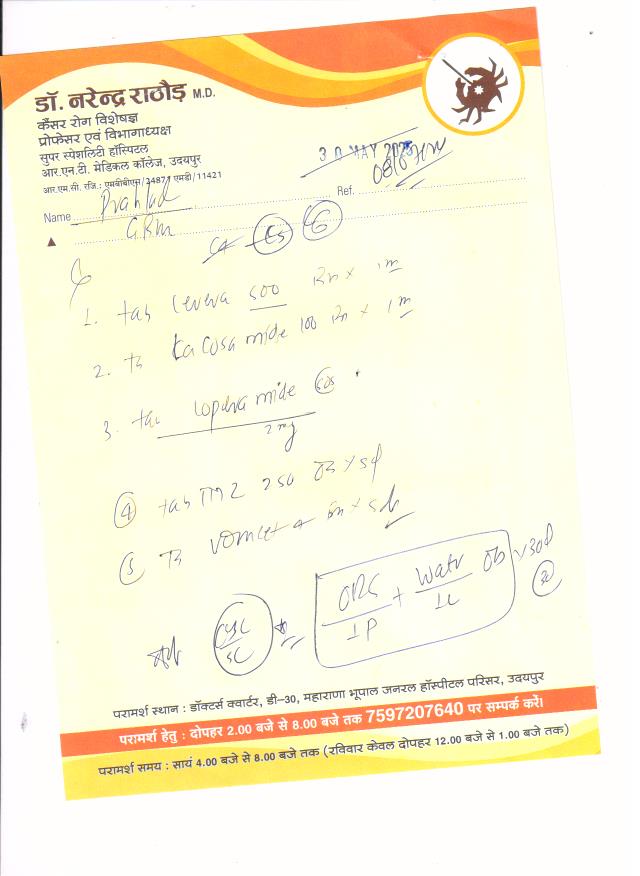 डॉ. नरेन्द्र राठौड़ M.D.
कैंसर रोग विशेषज्ञ
प्रोफेसर एवं विभागाध्यक्ष
सुपर स्पेशलिटी हॉस्पिटल
आर.एन.टी. मेडिकल कॉलेज, उदयपुर
आर.एम.सी. रजि.: एमबीबीएस/24877 एमडी/11421
30 MAY
Name Prahlad Ref.
1. tab levera 500 Bn x 1m
2. Tb Lacosamide 100 Bn x 1m
3. tab loperamide SOS
2mg
4 tab TMZ 250 OD x 5d
5 Tb vomcet 4 Bn x 5d
ORS + Water OD x 30d
1P 1L
परामर्श स्थान : डॉक्टर्स क्वार्टर, डी-30, महाराणा भूपाल जनरल हॉस्पीटल परिसर, उदयपुर
परामर्श हेतु : दोपहर 2.00 बजे से 8.00 बजे तक 7597207640 पर सम्पर्क करें।
परामर्श समय : सायं 4.00 बजे से 8.00 बजे तक (रविवार केवल दोपहर 12.00 बजे से 1.00 बजे तक)